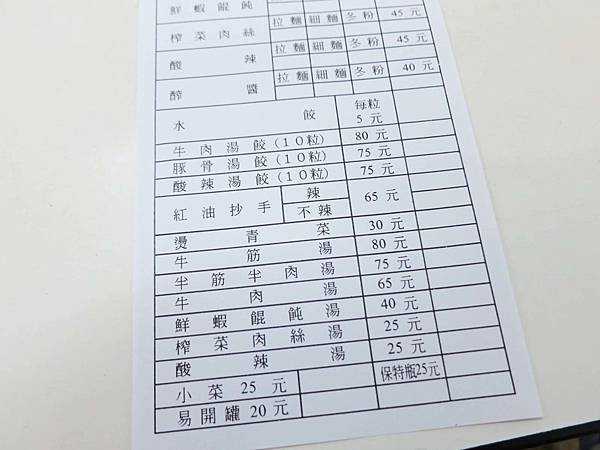 鮮蝦餛飩 拉麵 細麵 冬粉 45 元
榨菜肉絲 拉麵 細麵 冬粉 45 元
酸辣 拉麵 細麵 冬粉 40 元
醡醬
水餃 每粒 5 元
牛肉湯餃(10粒) 80 元
豚骨湯餃(10粒) 75 元
酸辣湯餃(10粒) 75 元
紅油抄手 辣 不辣 65 元
燙青菜 30 元
牛筋湯 80 元
半筋半肉湯 75 元
牛肉湯 65 元
鮮蝦餛飩湯 40 元
榨菜肉絲湯 25 元
酸辣湯 25 元
小菜 25 元 保特瓶25元
易開罐 20 元